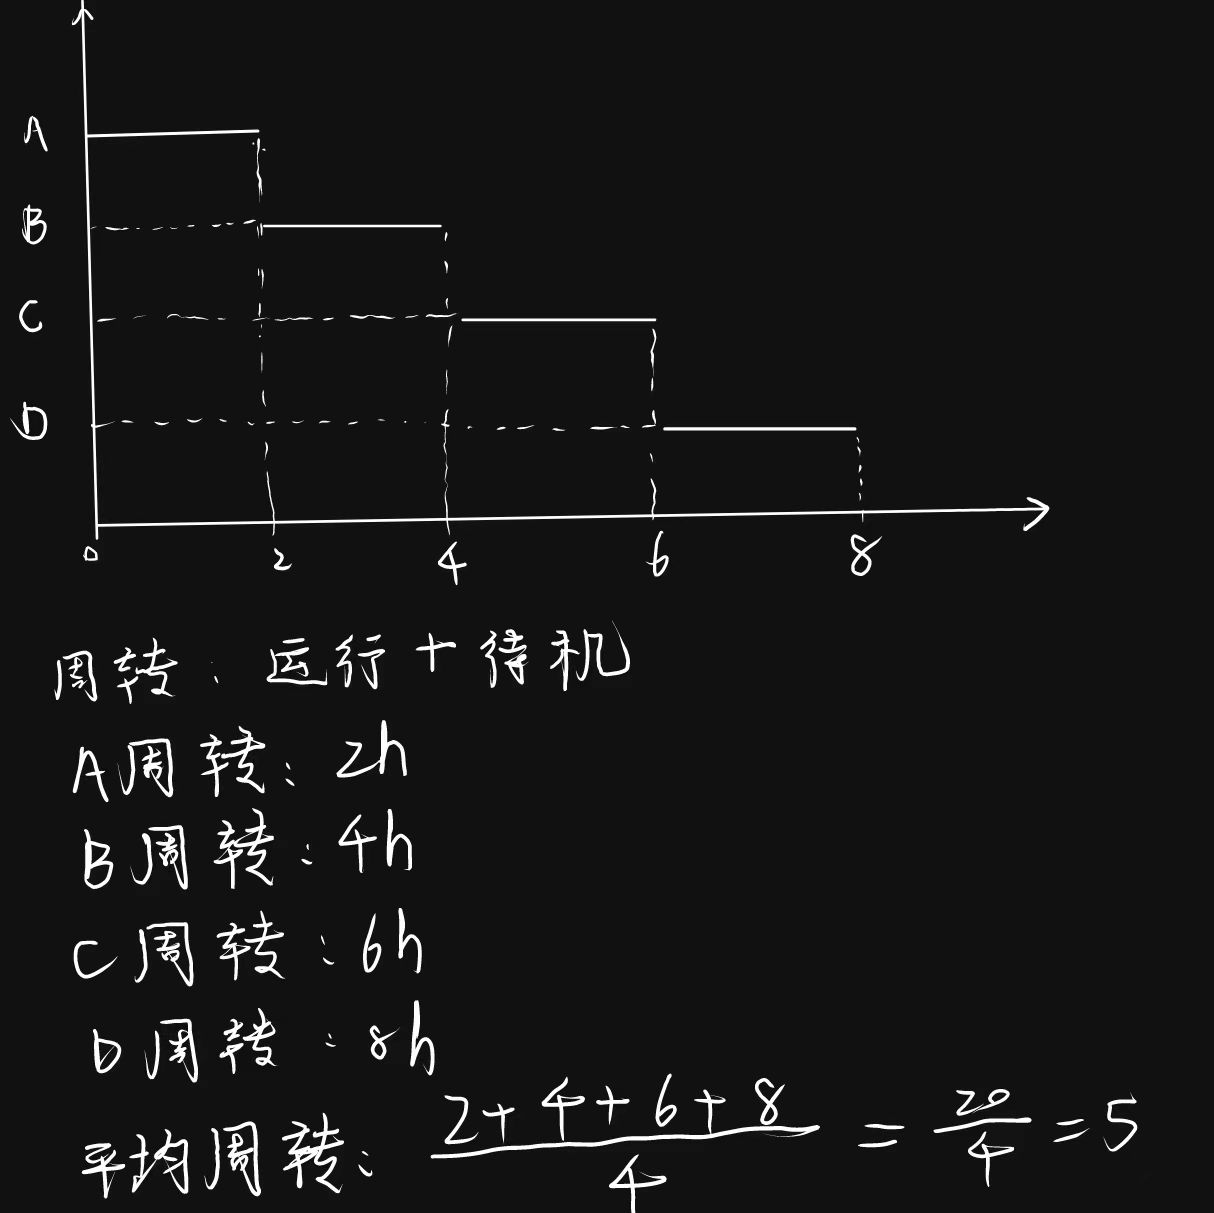 A
B
C
D
0 2 4 6 8
周转: 运行+待机
A周转: 2h
B周转: 4h
C周转: 6h
D周转: 8h
平均周转: (2+4+6+8)/4 = 20/4 = 5